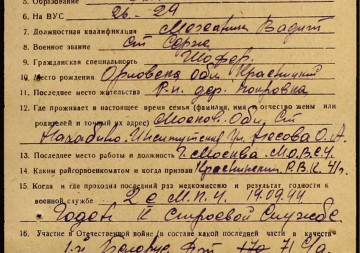 5. Образование
6. На ВУС 26-29
7. Должностная квалификация
8. Военное звание Ст Сержа
9. Гражданская специальность Шофер.
10. Место рождения Орловска обл.
11. Последнее место жительства Р-н. дер. Покровка
12. Где проживает в настоящее время семья (фамилия, имя отчество жены или
родителей и точный их адрес) Москов. Обл. Ст
Нахабино. Носова О.А.
13. Последнее место работы и должность г. Москва.
14. Каким райгорвоенкоматом и когда призван Р.В.К. 41г.
15. Когда и где проходил последний раз медкомиссию и результат годности к
военной службе 2 е М.П.У. 19.09.44
Годен К Строевой Службе.
16. Участие в Отечественной войне (в составе какой последней части в качестве
1-й Белорус Фт